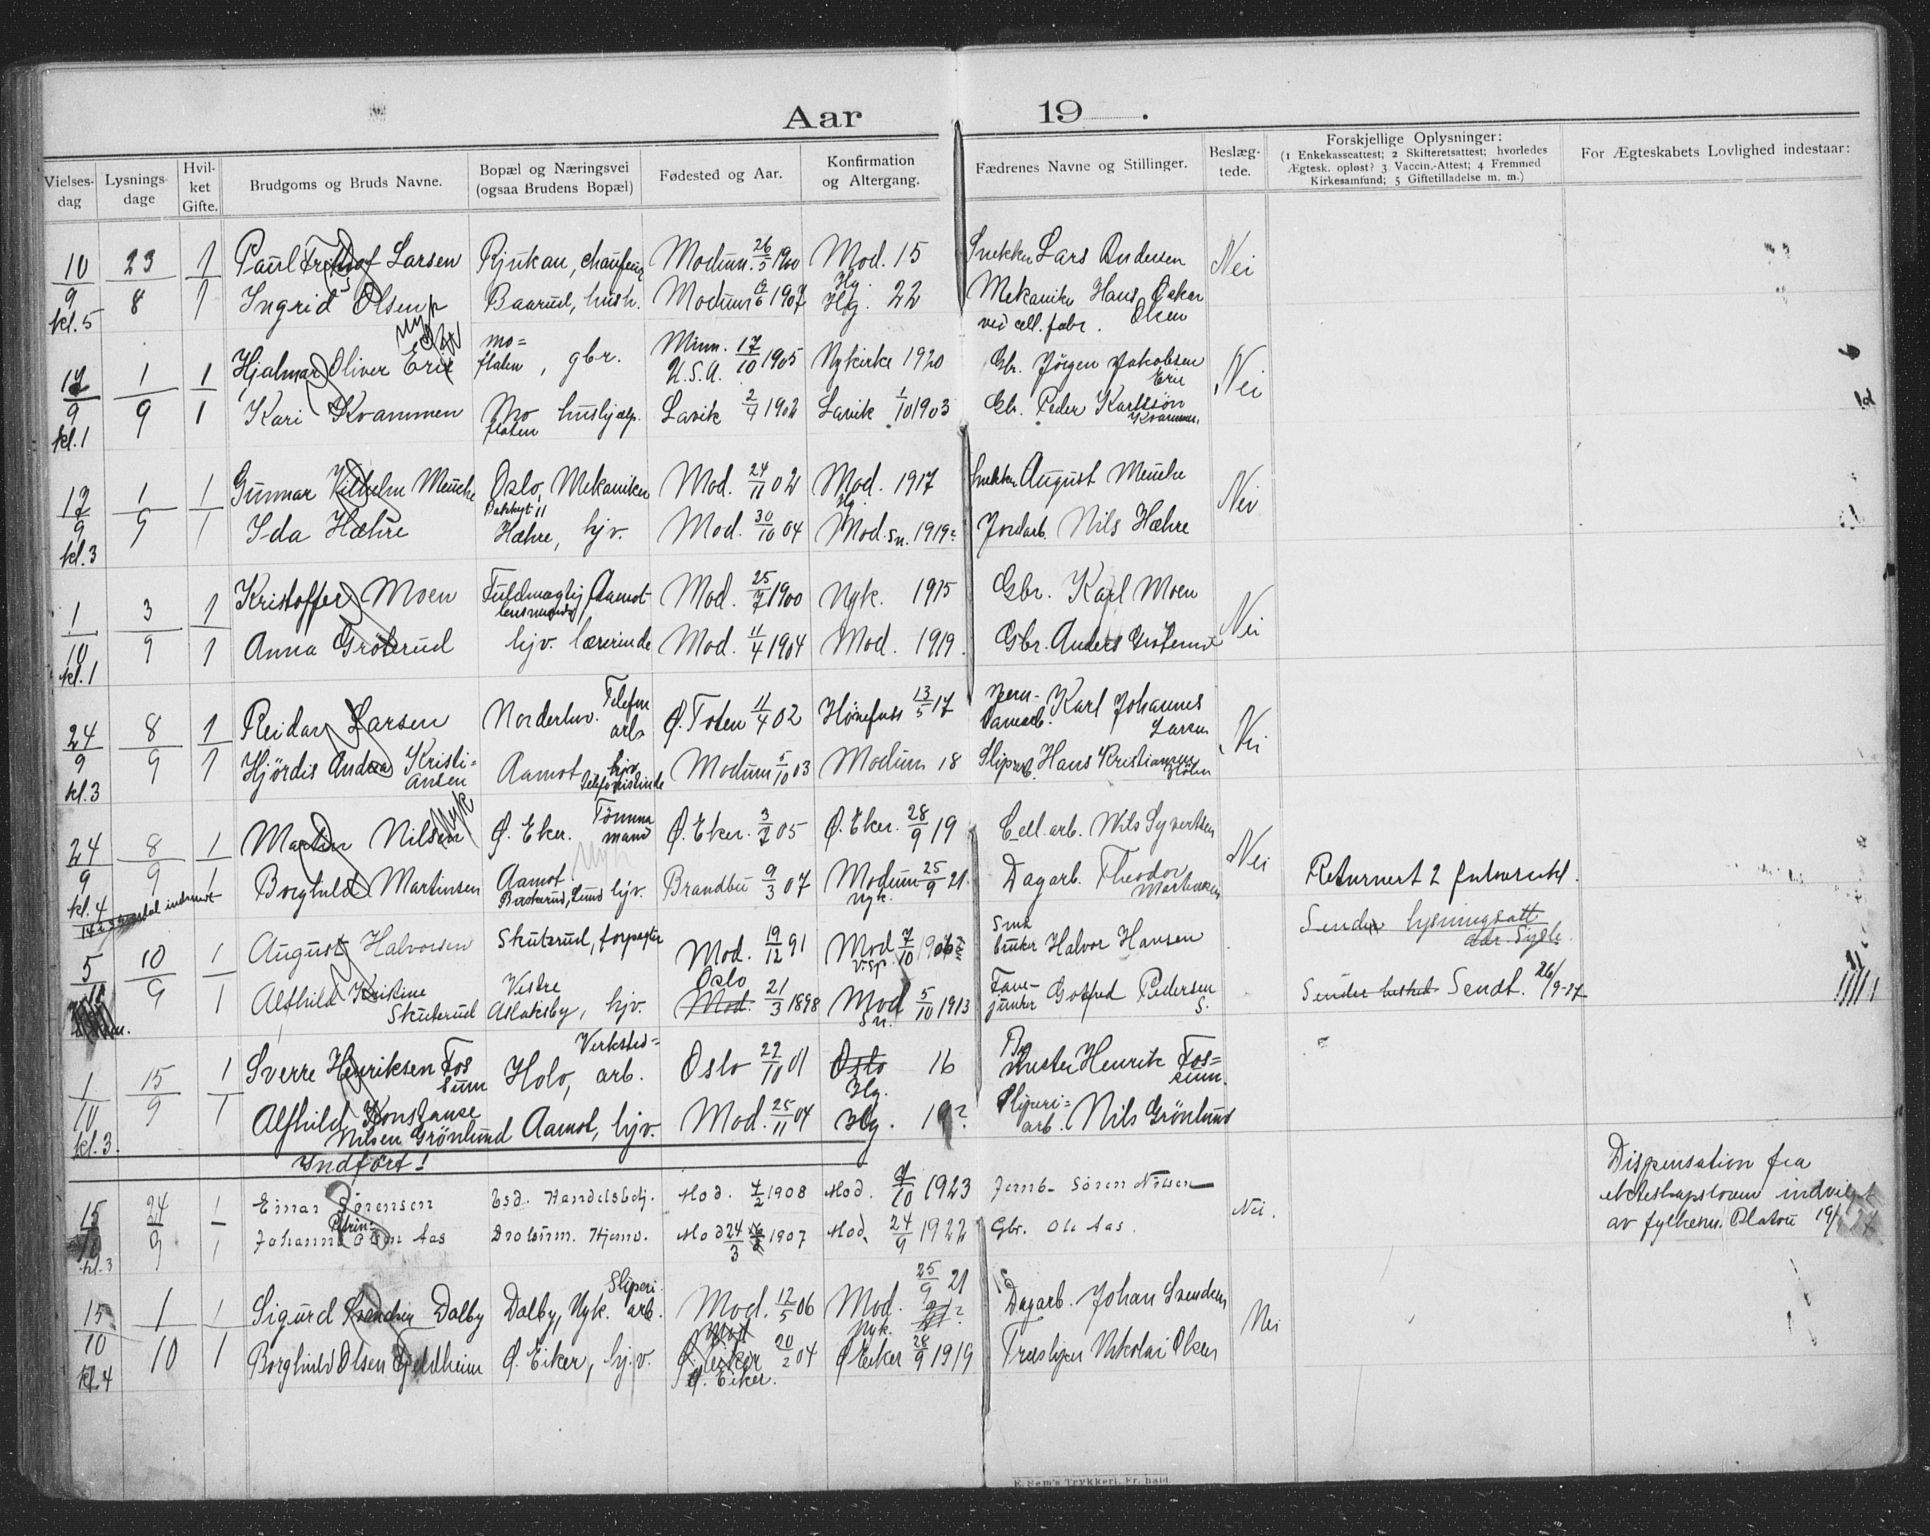 Aar 19 .
Vielses-dag Lysnings-dage Hvil-ket Gifte. Brudgoms og Bruds Navne. Bopæl og Næringsvei (ogsaa Brudens Bopæl) Fødested og Aar. Konfirmation og Altergang. Fædrenes Navne og Stillinger. Beslæg-tede. Forskjellige Oplysninger: (1 Enkekasseattest; 2 Skifteretsattest; hvorledes Ægtesk. opløst? 3 Vaccin.-Attest; 4 Fremmed Kirkesamfund; 5 Giftetilladelse m. m.) For Ægteskabets Lovlighed indestaar:
10/9 23 1 Paul Larsen Rjukan, chauffeur Modum. 26/5 1900 Mod. 15 Snekker Lars Andersen Nei
kl. 5 8 1 Ingrid Olsen Baarud, hush. Modum 1907 Hg. 22 Mekaniker Hans Oskar Olsen
ved cell. fabr.
17/9 1 1 Hjalmar Oliver Erie Moflaten, gbr. Minn. U.S.A. 17/10 1905 Nykirke 1920 Gbr. Jörgen Jakobsen Erie Nei
kl. 1 9 1 Kari Kvammen Moflaten hushjelp. Lavik 2/4 1902 Lavik 1/10 1903 Gbr. Peder Karlsson Kvammen.
17/9 1 1 Gunnar Vilhelm Oslo, Mekaniker Mod. 24/11 02 Mod. 1917 Snekker August Nei
kl. 3 9 1 Ida Hæhre Hæhre, hjv. Mod. 30/10 04 Mod. Sn. 1919? Jordarb. Nils Hæhre
1/10 3 1 Kristoffer Moen Fuldmægtig Aamot Mod. 25/7 1900 Nyk. 1915 Gbr. Karl Moen Nei
kl. 1 9 1 Anna Gröterud hjv. lærerinde Mod. 11/4 1904 Mod. 1919. Gbr. Anders Gröterud
24/9 8 1 Reidar Larsen Norderhov. Telefon arb. Ø. Toten 11/4 02 Hönefoss 13/5 17 Karl Johannes Larsen Nei
kl. 3 9 1 Hjördis Andrea Kristiansen Aamot hjv. telefonistinde Modum 5/10 03 Modum 18 Sliperiarb. Hans Kristiansen
24/9 8 1 Martin Nilsen Ø. Eker. Tömmermand Ø. Eker. 3/7 05 Ø. Eker. 28/9 19 Cell. arb. Nils Syvertsen Nei
kl. 4 9 1 Borghild Martinsen Aamot hjv. Brandbu 9/3 07 Modum Nyk. 25/9 21. Dagarb. Theodor Martinsen Returnert 2
5/10 10 1 August Halvorsen Skuterud, forpagter Mod. 19/12 91 Mod. 7/10 1906? Småbruker Halvor Hansen Sender lysningsatt
9 1 Alfhild Kristine Skuterud Vestre Aslaksby, hjv. Oslo Mod. 21/3 1898 Mod Sn. 5/10 1913 Gotfred Pedersen S. Sender Sendt. 26/9-27
1/10 15 1 Sverre Henriksen Fossum Holo, Verkstedarb. Oslo 22/10 01 Oslo Hg. 16 Henrik Fossum.
kl. 3. 9 1 Alfhild Konstanse Nilsen Grönlund Aamot, hjv. Mod. 25/11 04 Hg. 19? Sliperiarb. Nils Grönlund
Indfört!
15/10 24 1 Einar Sörensen Esd. Handelsbetj. Mod. 7/2 1908 Mod. 7/10 1923 Jernb- Sören Nilsen Nei.
kl. 3 9 1 Johanne Petrine Olsen Aas Drolsum. Hjemv. Mod 24/3 1907 Mod. 24/9 1922 Gbr. Ole Aas.
Dispensation fra ekteskapsloven indvilget av fylkesm. Platou 19/
15/10 1 1 Sigurd Svendsen Dalby Dalby, Nyk. Sliperi arb. Mod. 12/5 06 Mod. Nyk. 25/9 21 Dagarb. Johan Svendsen Nei
kl. 4 10 1 Borghild Olsen Gjeldheim Ø. Eiker, hj.v. Ø. Eiker. 20/2 04 Ø Eiker 28/9 1919 Tresliper Nikolai Olsen
E. Sem's Trykkeri, Fr. hald.